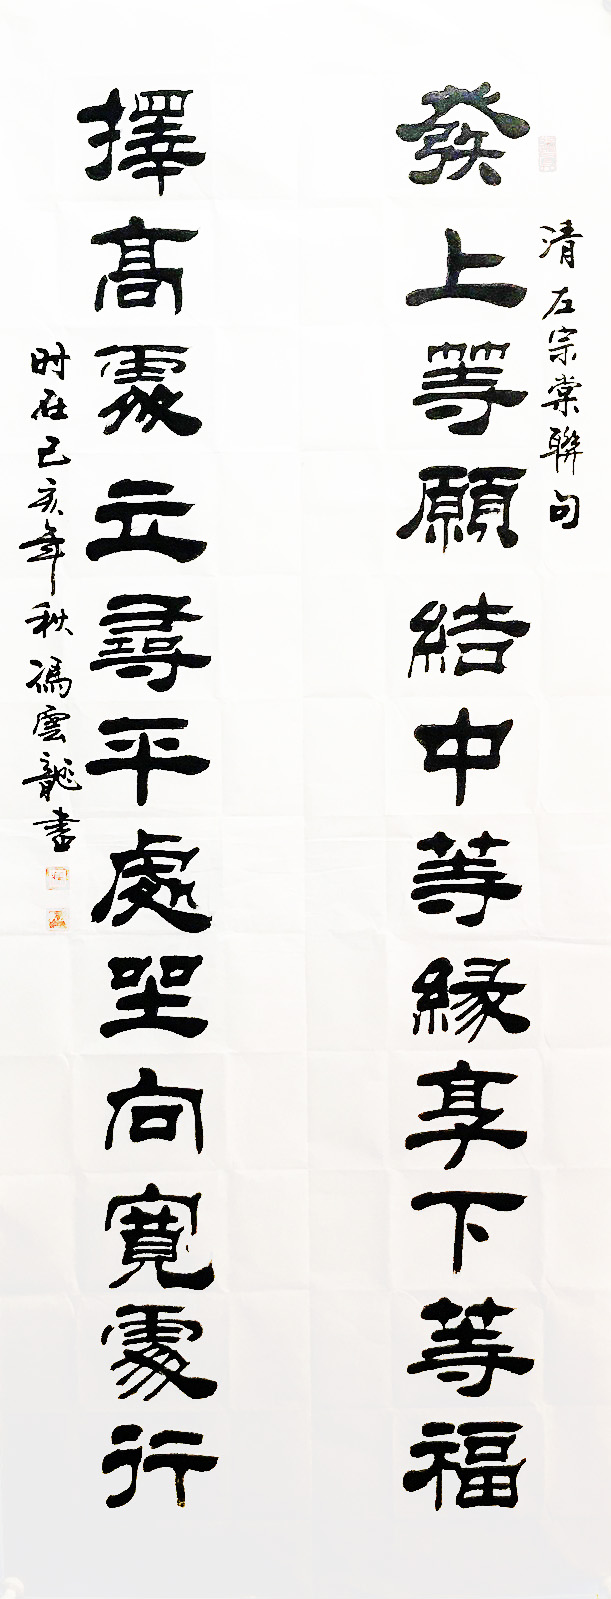 清左宗棠聯句
發上等願結中等緣享下等福
擇高處立尋平處坐向寬處行
时在己亥年秋馮雲龍書